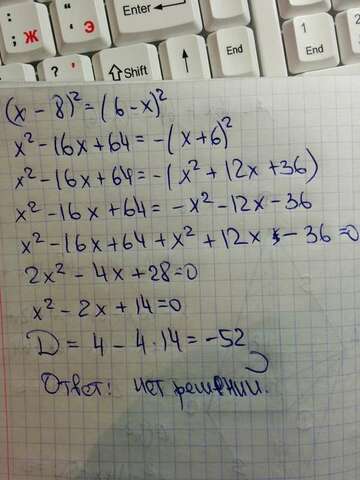 : Ж ;
" Э '
Enter
End
? , 
Shift
1 End
2
(x - 8)² = (6 - x)²
x² - 16x + 64 = -(x + 6)²
x² - 16x + 64 = -(x² + 12x + 36)
x² - 16x + 64 = -x² - 12x - 36
x² - 16x + 64 + x² + 12x - 36 = 0
2x² - 4x + 28 = 0
x² - 2x + 14 = 0
D = 4 - 4 · 14 = -52
Ответ: нет решений.